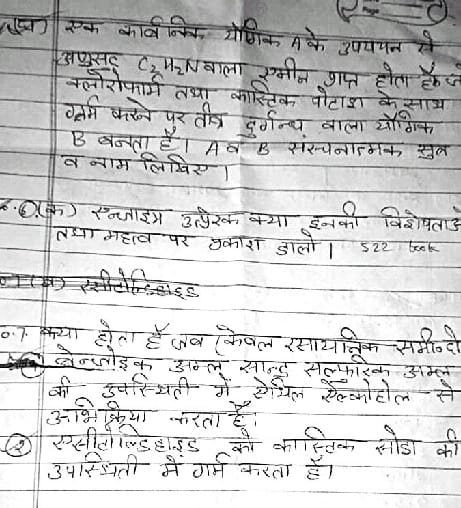 एक कार्बनिक यौगिक A के उपचयन से
अणुसूत्र C2H2N वाला एमीन प्राप्त होता है जो
क्लोरोफार्म तथा कास्टिक पोटाश के साथ
गर्म करने पर तीव्र दुर्गन्ध वाला यौगिक
B बनता है। A व B संरचनात्मक सूत्र
व नाम लिखिए।
(क) एन्जाइम उत्प्रेरक क्या इनकी विशेषताऐं
तथा महत्व पर प्रकाश डालो। S22 book
(ख) एसीटेल्डिहाइड
0.7. क्या होता है जब (केवल रसायनिक समी० दो
बेन्जोइक अम्ल सान्द्र सल्फ्यूरिक अम्ल
की उपस्थिती में एथिल ऐल्कोहोल से
अभिक्रिया करता है।
(2) एसीटेल्डिहाइड को कास्टिक सोडा की
उपस्थिती में गर्म करता है।